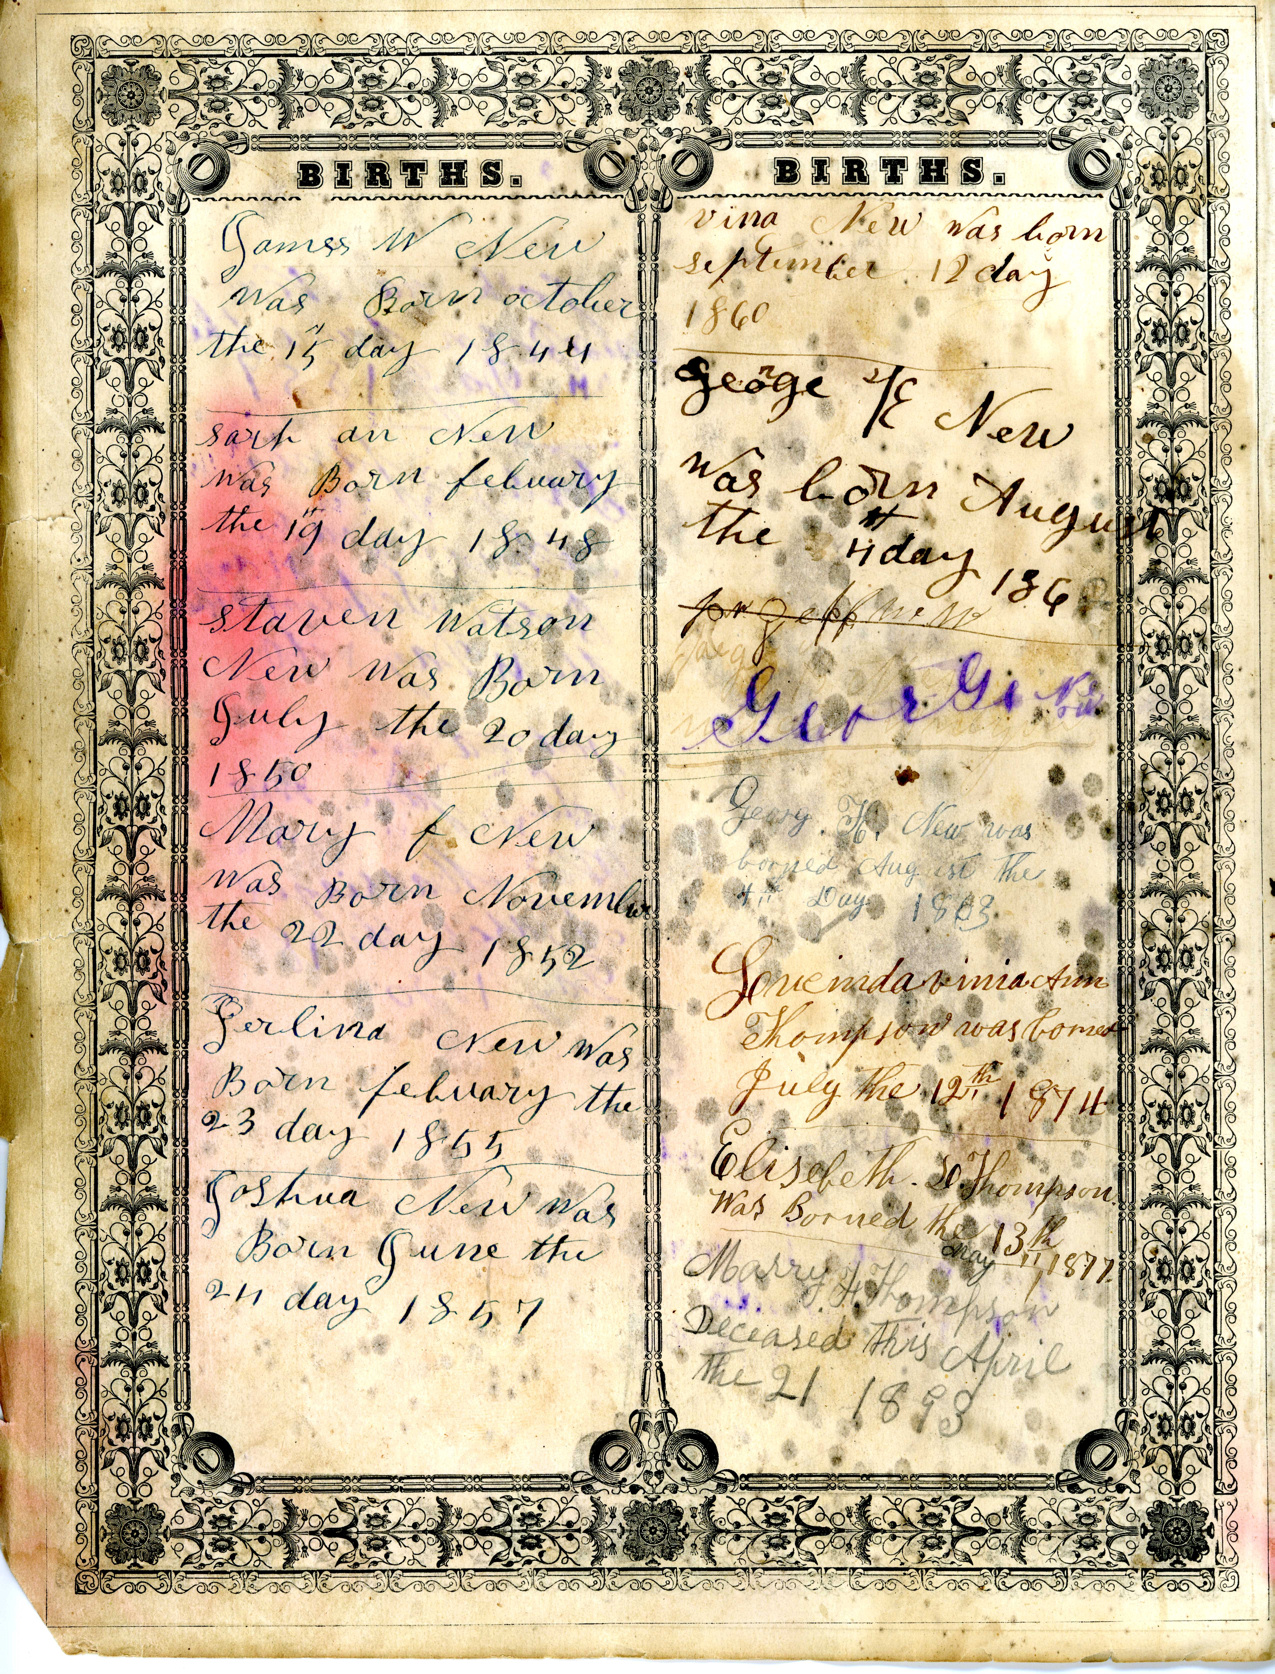 BIRTHS.
James W New
Was Born october
the 15 day 1844
sarh an New
Was Born febuary
the 19 day 1848
staven Watson
New Was Born
July the 20 day
1850
Mary f New
Was Born November
the 22 day 1852
Perlina New Was
Born febuary the
23 day 1855
Joshua New Was
Born June the
24 day 1857
BIRTHS.
vina New was born
september 12 day
1860
George E New
Was born August
the 4 day 186
new
George New
Georg H. New was
borned August the
4th Day 1863
Loueinda vinia Ann
Thompson was borned
July the 12th 1874
Elisebeth. Thompson
Was Borned the 13th
may 1877.
Marry Thompson
Deceased this April
the 21 1893